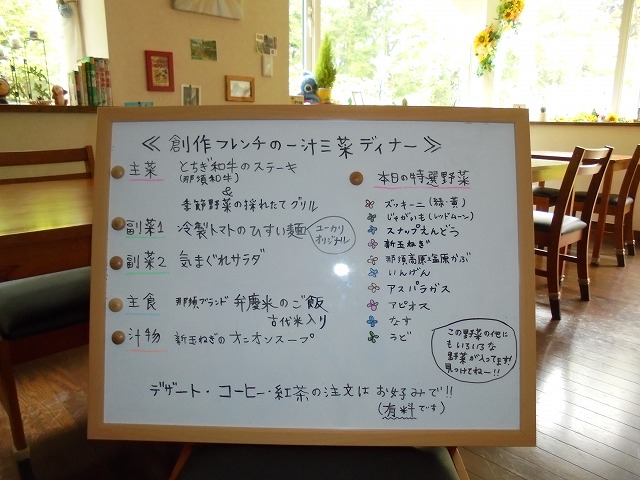 ≪創作フレンチの一汁三菜ディナー≫
主菜 とちぎ和牛のステーキ
(那須和牛)
&
季節野菜の採れたてグリル
副菜1 冷製トマトのひすい麺
ユーカリ
オリジナル
副菜2 気まぐれサラダ
主食 那須ブランド 弁慶米のご飯
古代米入り
汁物 新玉ねぎのオニオンスープ
本日の特選野菜
ズッキーニ(緑・黄)
じゃがいも(レッドムーン)
スナップえんどう
新玉ねぎ
那須高原塩原かぶ
いんげん
アスパラガス
アピオス
なす
うど
この野菜の他に
もいろいろな
野菜が入ってます
見つけてねー!!
デザート・コーヒー・紅茶の注文はお好みで!!
(有料です)